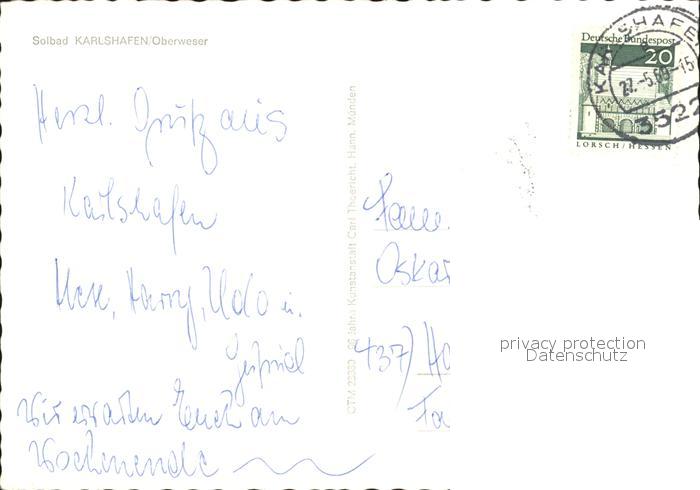 Solbad KARLSHAFEN/Oberweser
Deutsche Bundespost
20
LORSCH/HESSEN
KARLSHAFEN
27.-5.69-15
3522
Herzl. Grüße aus
Karlshafen
Harry, Udo u.
Wir erwarten Euch am
Wochenende
CTM 22380 Jahre Kunstanstalt Carl Thoericht, Hann. Münden
Fam.
Oskar
437) Ha
privacy protection
Datenschutz